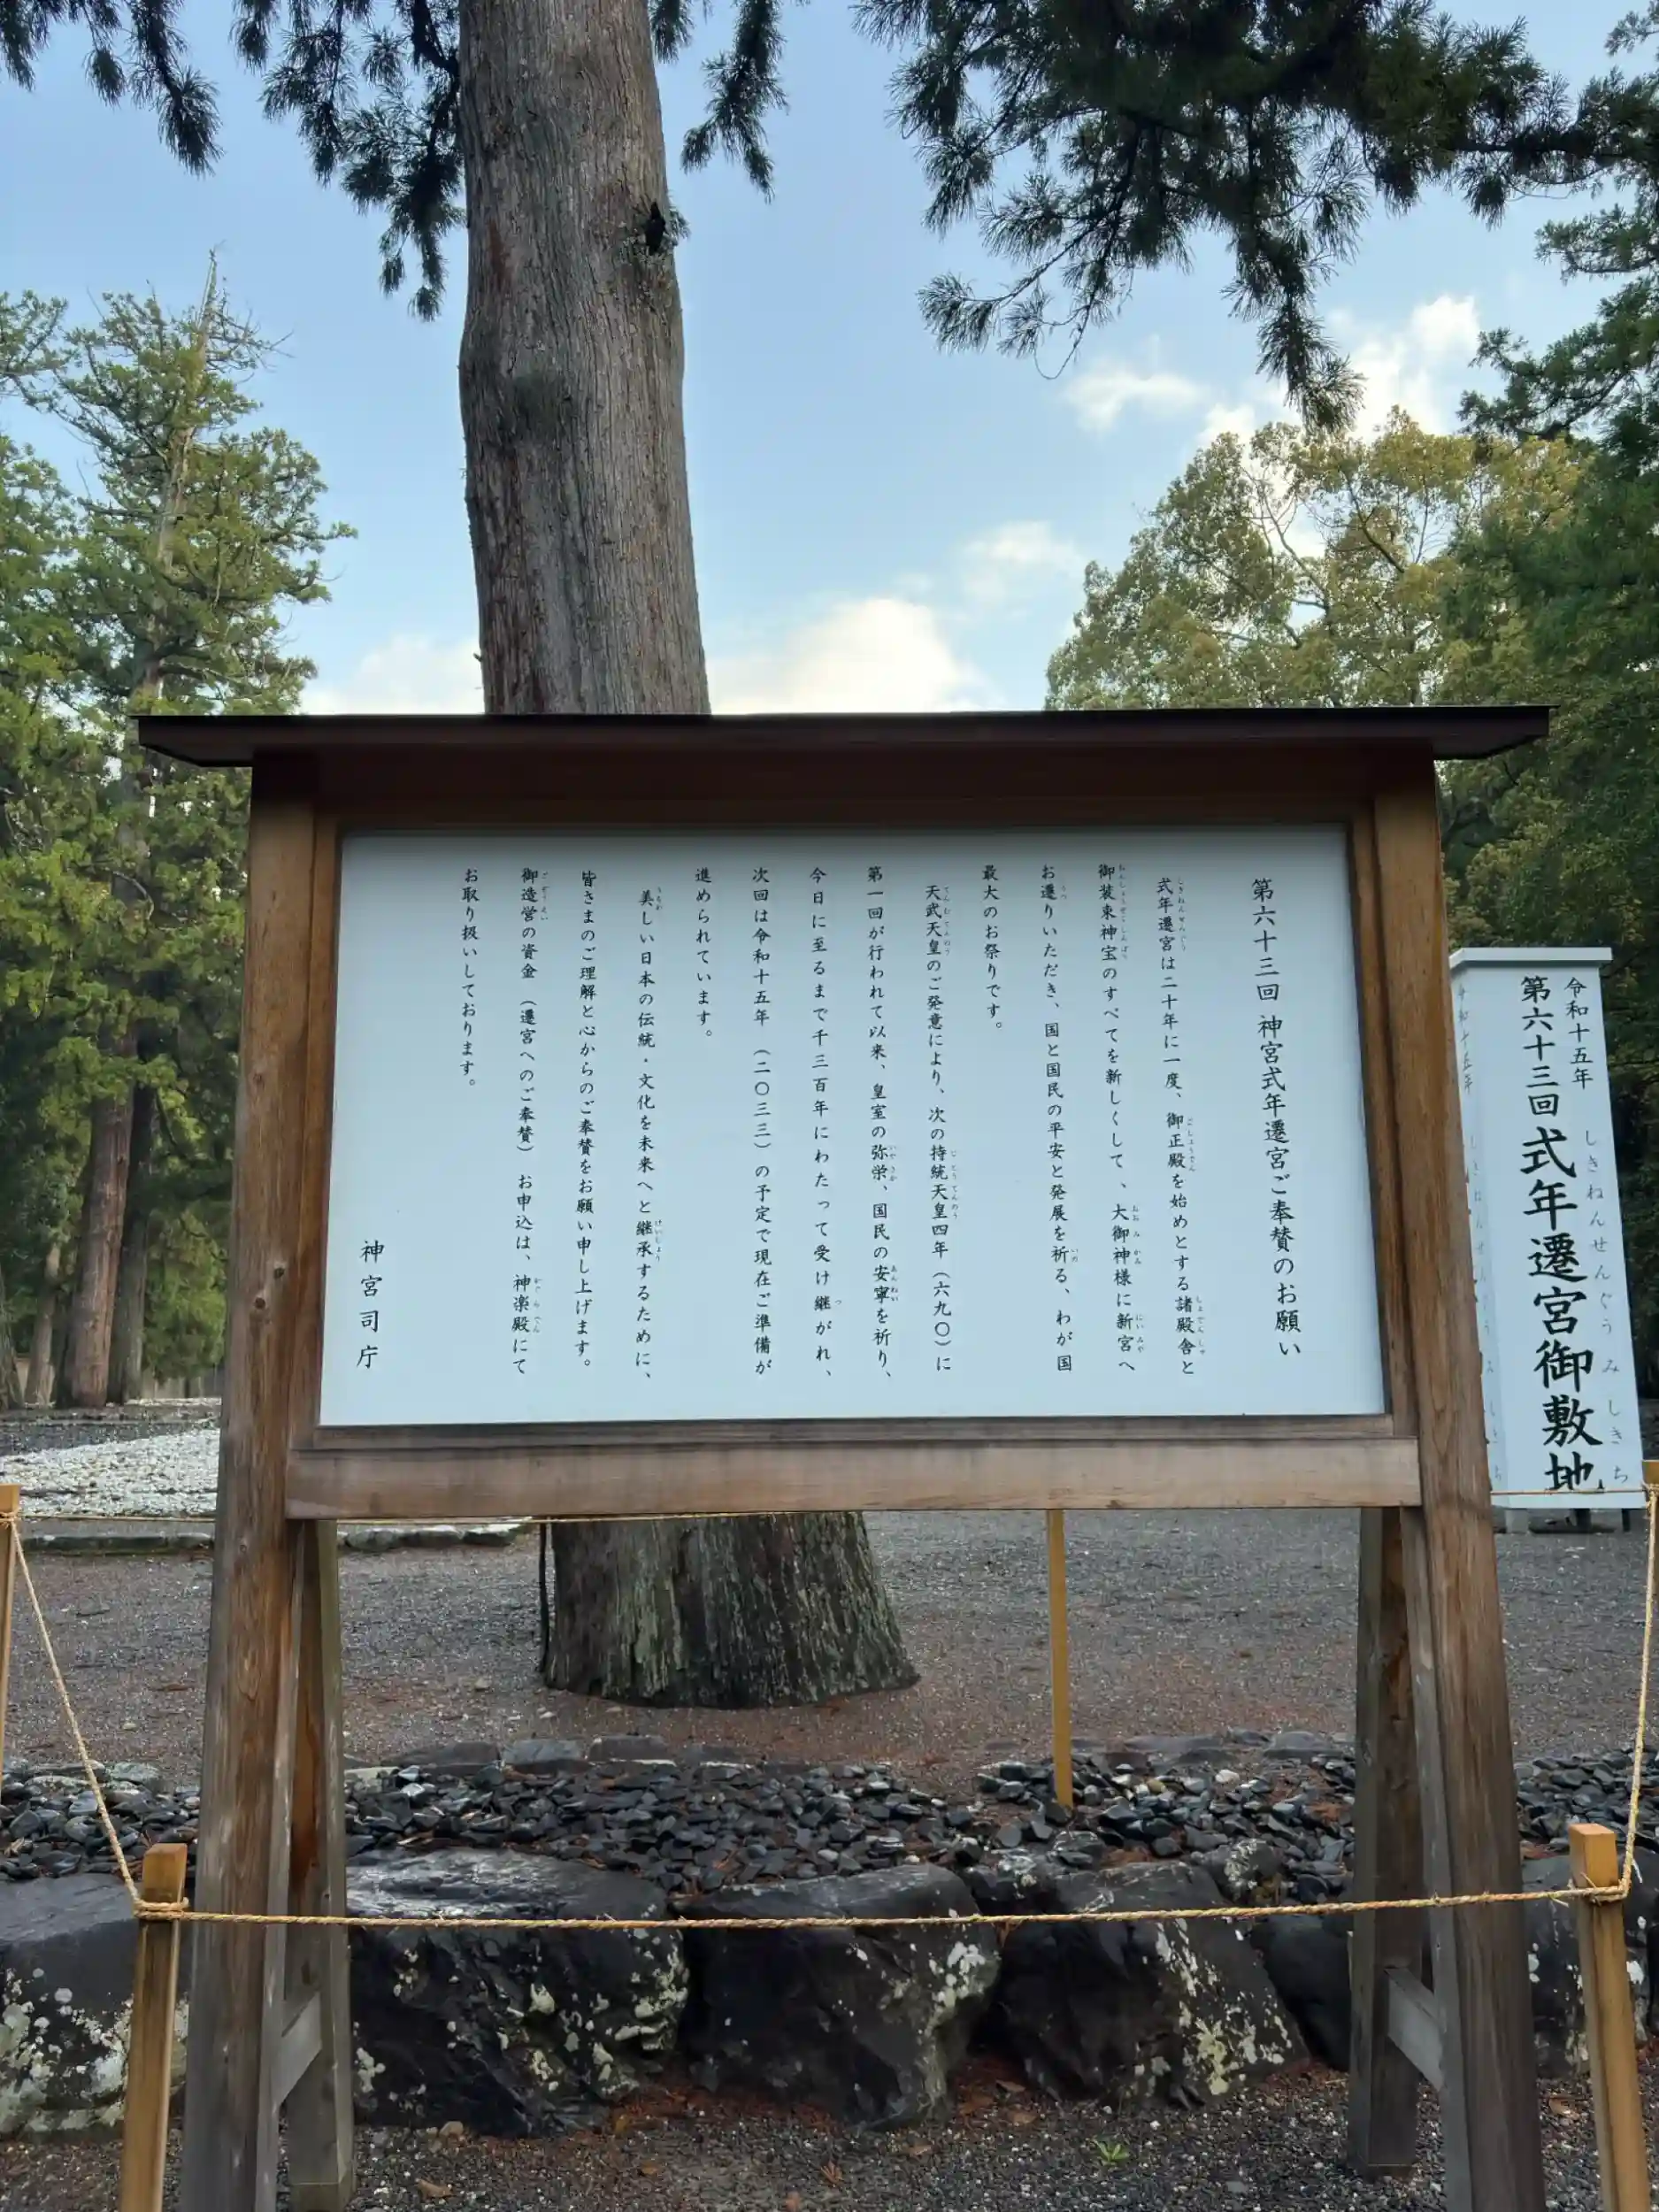 第六十三回 神宮式年遷宮ご奉賛のお願い
式年遷宮は二十年に一度、御正殿を始めとする諸殿舎と
御装束神宝のすべてを新しくして、大御神様に新宮へ
お遷りいただき、国と国民の平安と発展を祈る、わが国
最大のお祭りです。
天武天皇のご発意により、次の持統天皇四年（六九〇）に
第一回が行われて以来、皇室の弥栄、国民の安寧を祈り、
今日に至るまで千三百年にわたって受け継がれ、
次回は令和十五年（二〇三三）の予定で現在ご準備が
進められています。
美しい日本の伝統・文化を未来へと継承するために、
皆さまのご理解と心からのご奉賛をお願い申し上げます。
御造営の資金（遷宮へのご奉賛）お申込は、神楽殿にて
お取り扱いしております。
神宮司庁
令和十五年
第六十三回式年遷宮御敷地
しきねんせんぐうみしきち